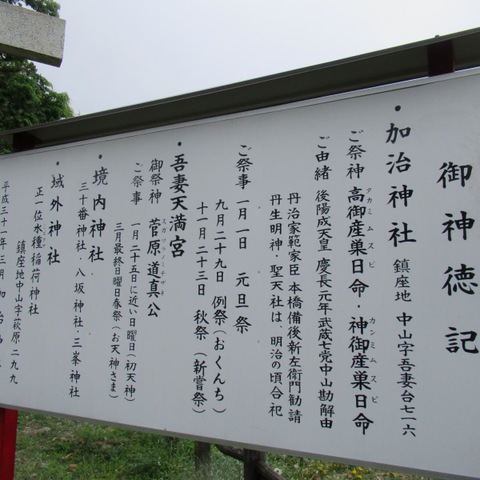 御神徳記
・加治神社 鎮座地 中山字吾妻台七一六
ご祭神 高御産巣日命・神御産巣日命
タカミムスビ カンミムスビ
ご由緒 後陽成天皇 慶長元年 武蔵七党中山勘解由
丹治家範家臣 本橋備後新左衛門勧請
丹生明神・聖天社は 明治の頃合祀
ご祭事 一月一日 元旦祭
九月二十九日 例祭(おくんち)
十一月二十三日 秋祭(新嘗祭)
・吾妻天満宮
御祭神 菅原道真公
スガワラノミチザネ
ご祭事 一月二十五日に近い日曜日(初天神)
三月最終日曜日春祭(お天神さま)
・境内神社
三十番神社・八坂神社・三峯神社
・域外神社
正一位水種稲荷神社
鎮座地中山字萩原二九九
平成三十一年三月 加治